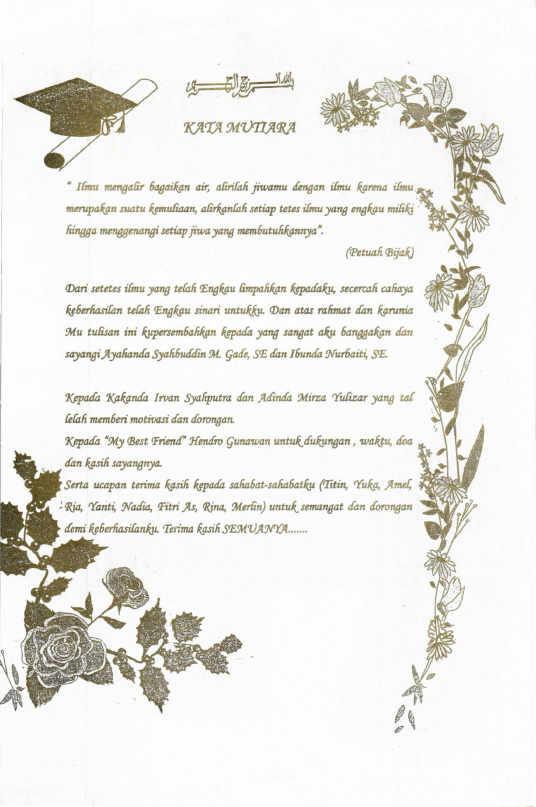 بسم الله الرحمن الرحيم
KATA MUTIARA
" Ilmu mengalir bagaikan air, alirilah jiwamu dengan ilmu karena ilmu
merupakan suatu kemuliaan, alirkanlah setiap tetes ilmu yang engkau miliki
hingga menggenangi setiap jiwa yang membutuhkannya".
(Petuah Bijak)
Dari setetes ilmu yang telah Engkau limpahkan kepadaku, secercah cahaya
keberhasilan telah Engkau sinari untukku. Dan atas rahmat dan karunia
Mu tulisan ini kupersembahkan kepada yang sangat aku banggakan dan
sayangi Ayahanda Syahbuddin M. Gade, SE dan Ibunda Nurbaiti, SE.
Kepada Kakanda Irvan Syahputra dan Adinda Mirza Yulizar yang tal
lelah memberi motivasi dan dorongan.
Kepada "My Best Friend" Hendro Gunawan untuk dukungan , waktu, doa
dan kasih sayangnya.
Serta ucapan terima kasih kepada sahabat-sahabatku (Titin, Yuka, Amel,
Ria, Yanti, Nadia, Fitri As, Rina, Merlin) untuk semangat dan dorongan
demi keberhasilanku. Terima kasih SEMUANYA.......